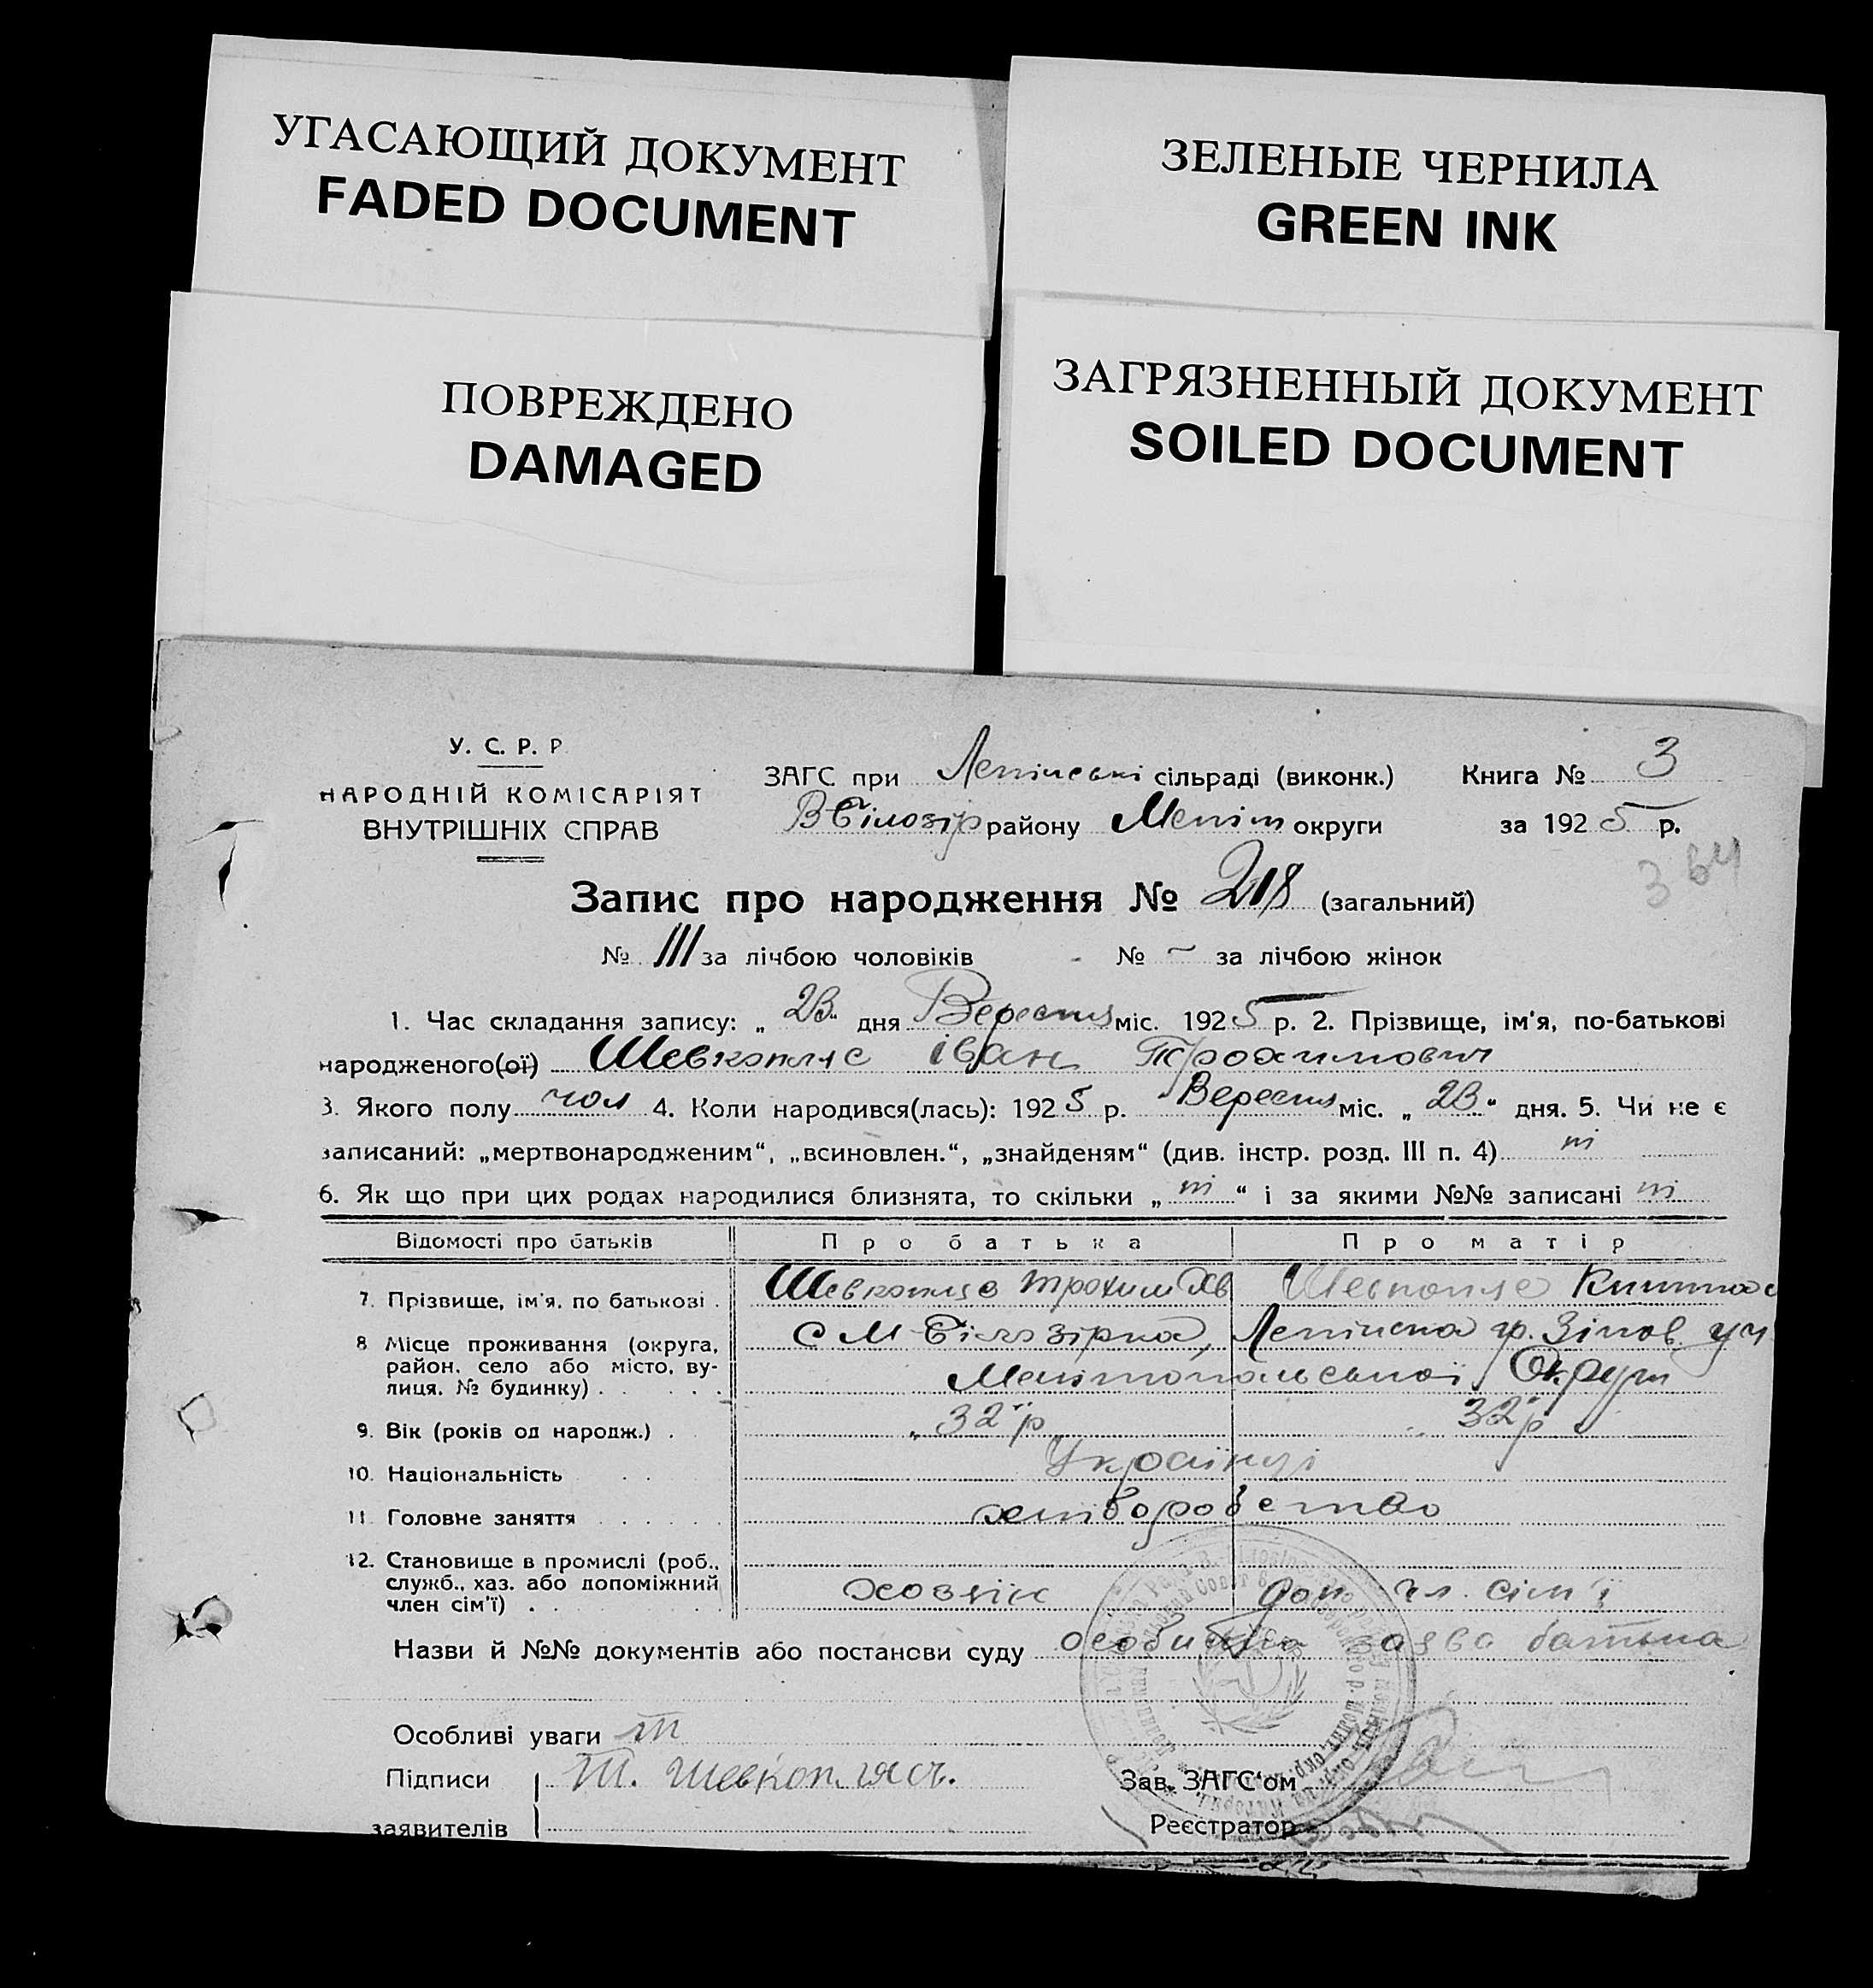 УГАСАЮЩИЙ ДОКУМЕНТ
FADED DOCUMENT
ЗЕЛЕНЫЕ ЧЕРНИЛА
GREEN INK
ПОВРЕЖДЕНО
DAMAGED
ЗАГРЯЗНЕННЫЙ ДОКУМЕНТ
SOILED DOCUMENT
У. С. Р. Р
НАРОДНІЙ КОМІСАРІЯТ
ВНУТРІШНІХ СПРАВ
ЗАГС при сільраді (виконк.) Книга № 3
В-Білозір району Меліт округи за 1925 р.
364
Запис про народження № 218 (загальний)
№ 111 за лічбою чоловіків № ~ за лічбою жінок
1. Час складання запису: „ 23 “ дня Вересня міс. 1925 р. 2. Прізвище, ім'я, по-батькові
народженого(ої) Шевкопляс Іван Трохимович
3. Якого полу чол 4. Коли народився(лась): 1925 р. Вересня міс. „ 23 “ дня. 5. Чи не є
записаний: „мертвонародженим“, „всиновлен.“, „знайденям“ (див. інстр. розд. III п. 4) ні
6. Як що при цих родах народилися близнята, то скільки „ ні “ і за якими №№ записані ні
Відомості про батьків Про батька Про матір
7. Прізвище, ім'я, по батькові . Шевкопляс Трохим Шевкопляс
8 Місце проживання (округа, С М-Білозірка,
район, село або місто, ву-
лиця, № будинку) . . . . . Мелітопольської Округи
9. Вік (років од народж.) . „ 32 р „ 32 р
10. Національність . . Українці
11. Головне заняття . . . . . . хліборобство
12. Становище в промислі (роб.,
служб., хаз. або допоміжний хозяїн доп чл. сім'ї
член сім'ї) . .
Назви й №№ документів або постанови суду особиста заява батька
Особливі уваги ні
Підписи Т. Шевкопляс. Зав. ЗАГС'ом
заявителів Реєстратор